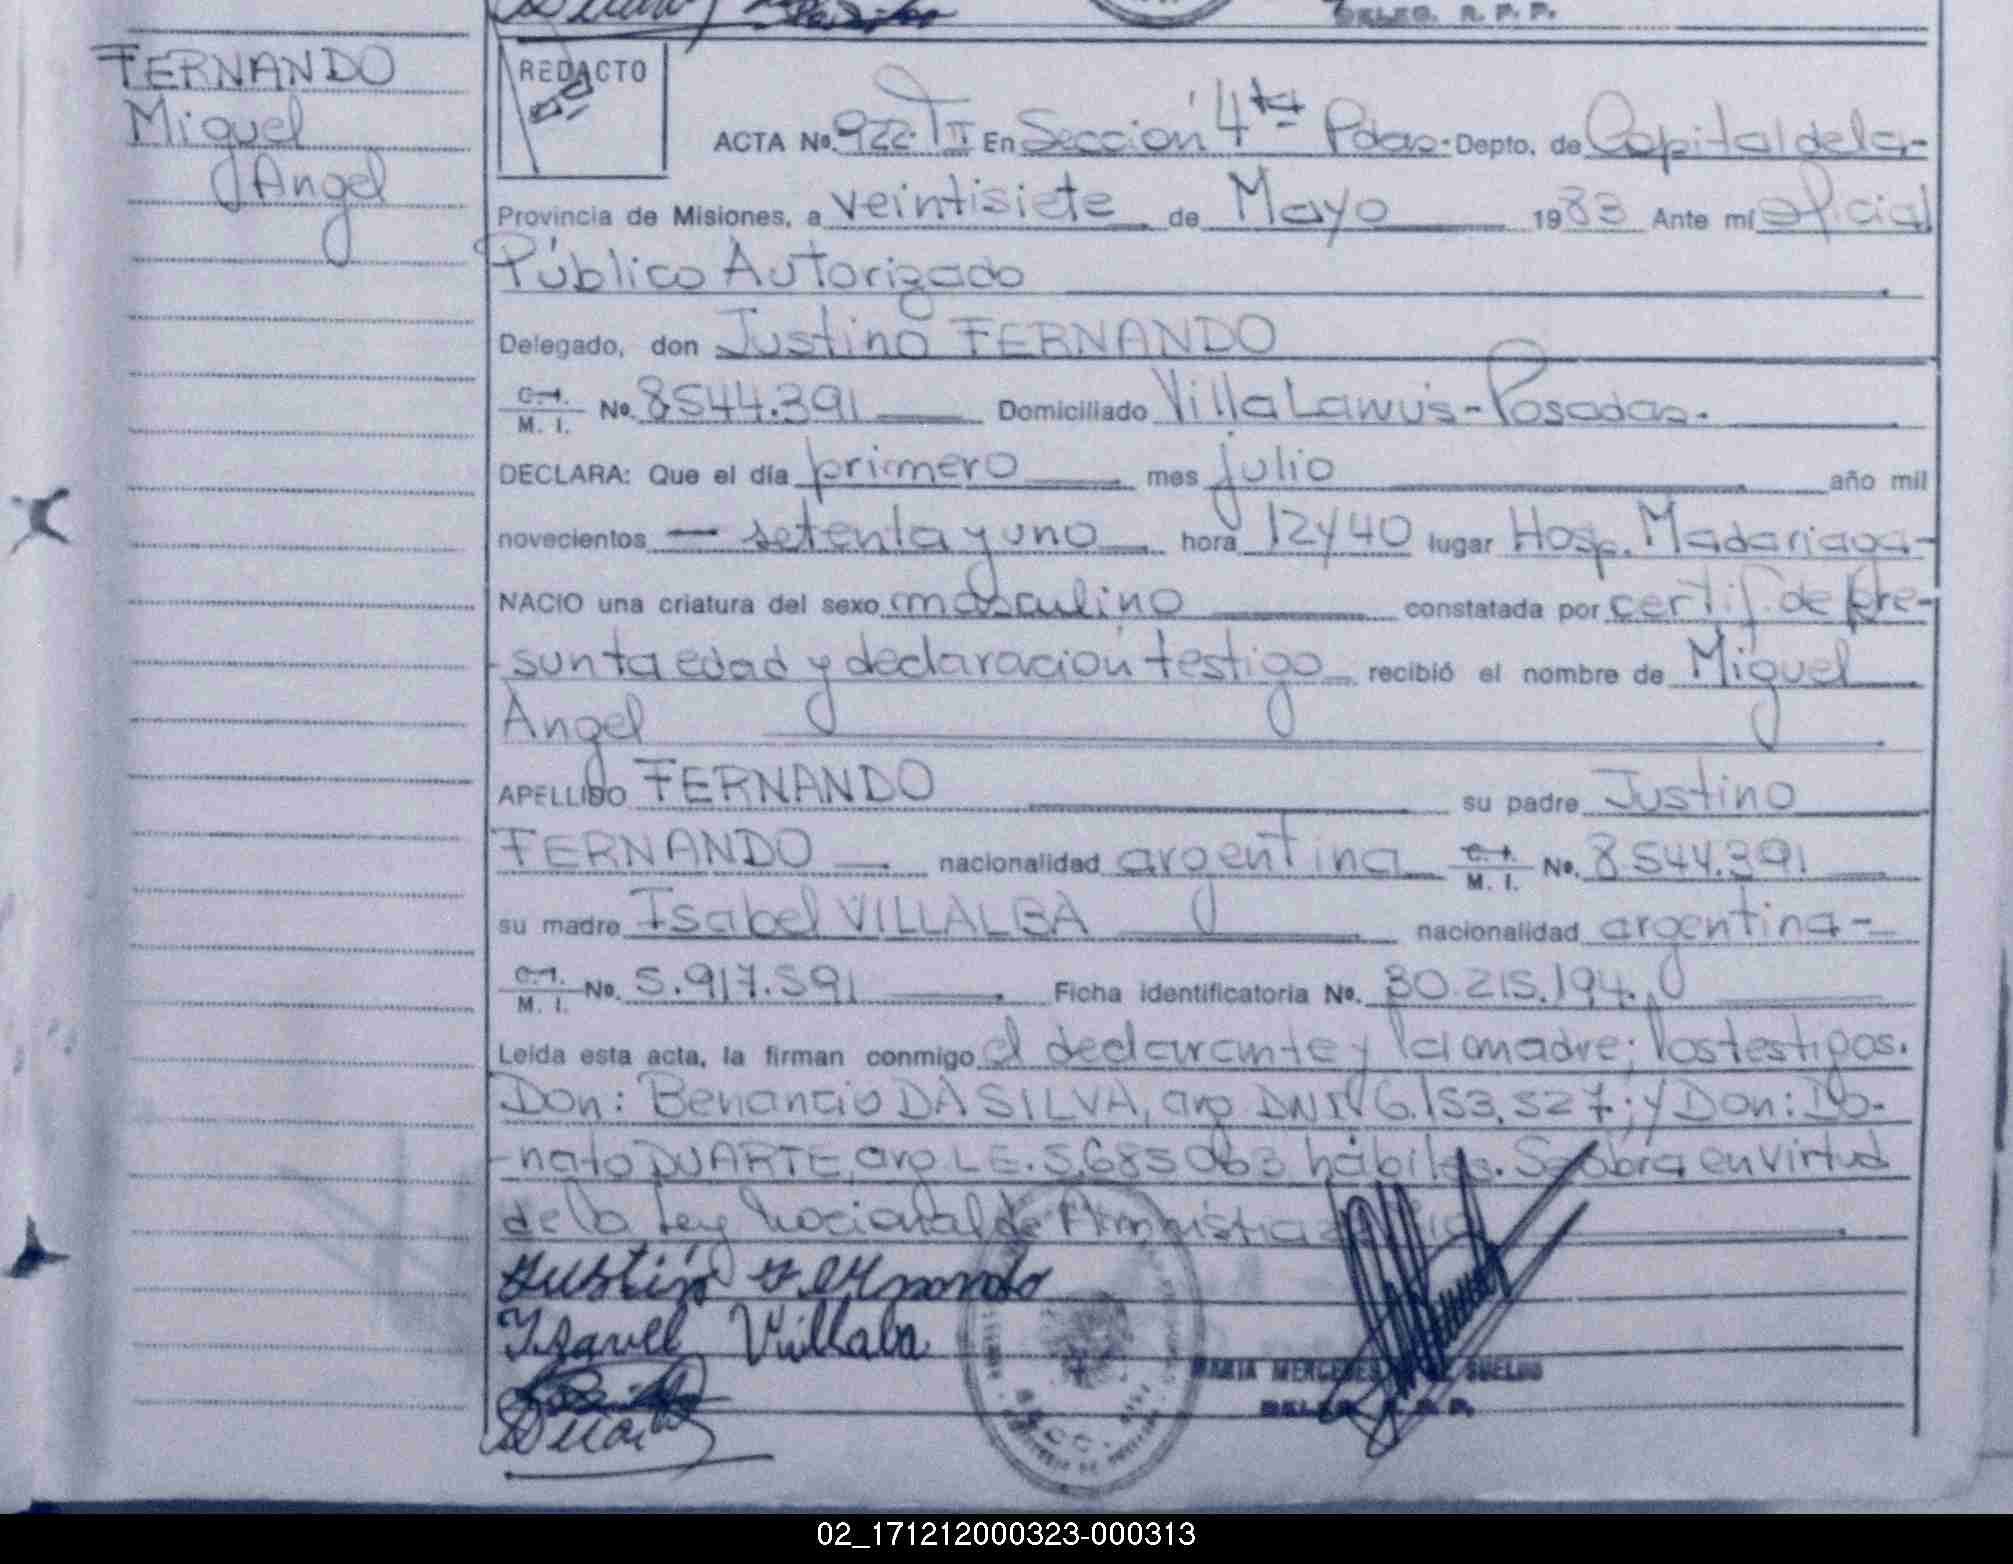 DELEG. R. P. P.
FERNANDO
Miguel
Angel
REDACTO
ACTA Nº. 922. T II En Sección 4ta Pdas. Depto. de Capital de la-
Provincia de Misiones, a veintisiete de Mayo 1983 Ante mí oficial
Público Autorizado
Delegado, don Justino FERNANDO
C.I. M. I. Nº. 8544.391 Domiciliado Villa Lanús-Posadas.
DECLARA: Que el día primero mes julio año mil
novecientos — setenta y uno hora 12y40 lugar Hosp. Madariaga-
NACIO una criatura del sexo masculino constatada por certif. de pre-
-sunta edad y declaración testigo recibió el nombre de Miguel
Angel
APELLIDO FERNANDO su padre Justino
FERNANDO nacionalidad argentina C.I. M. I. Nº. 8544.391
su madre Isabel VILLALBA nacionalidad argentina-
C.I. M. I. Nº. 5.917.591 Ficha identificatoria Nº. 30.215.194.
Leída esta acta, la firman conmigo el declarante y la madre; los testigos.
Don: Benancio DA SILVA, arg. DNI Nº 6.153.527; y Don: Do-
-nato DUARTE, arg. L.E. 5.685.063 hábiles. Se obra en virtud
de la Ley Nacional de Amnistia
Justin Fernando
Isavel Villalva
MARIA MERCEDES DE SUELDO
DELEG. R. P. P.
02_171212000323-000313